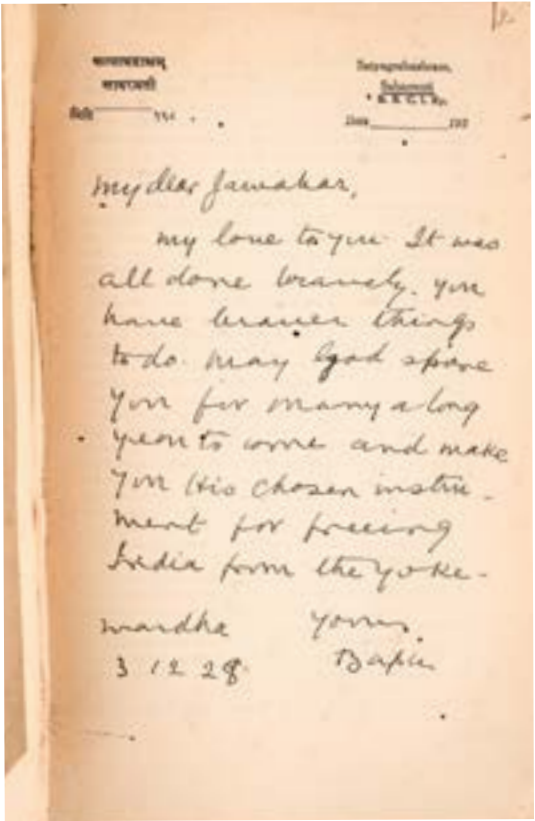 सत्याग्रहाश्रम,
साबरमती
मिति ११८
Satyagrahashram,
Sabarmati
B. B. C. I. Ry.
Date 192
My dear Jawahar,
My love to you. It was
all done bravely. You
have braver things
to do. May God spare
you for many a long
year to come and make
you His chosen instru-
ment for freeing
India from the yoke-
Wardha Yours,
3 12 28 Bapu